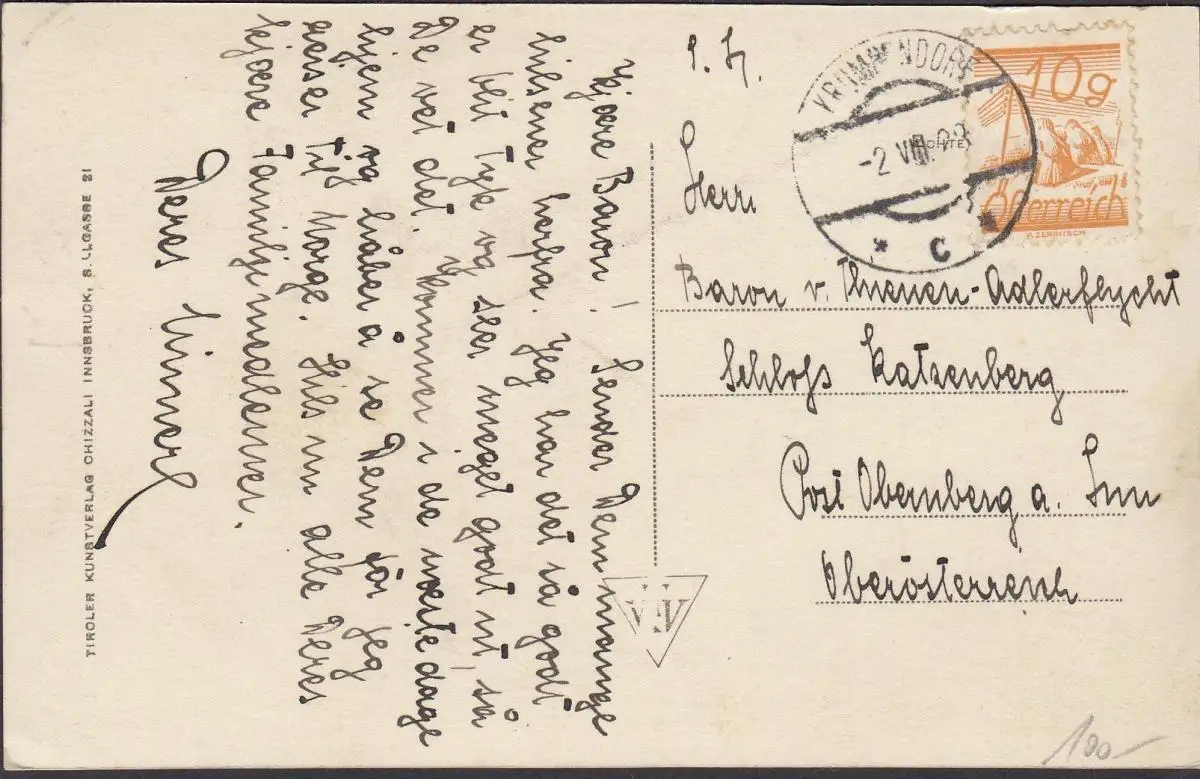 Kjære Baron! Sender Dem mange
hilsener herfra. Jeg har det så godt
er blit tyk og ser meget godt ut, så
De vet det. Kommer i de næste dage
hjem og håber å se Dem før jeg
reiser til Norge. Hils nu alle Deres
kjære Familjemedlemer.
Deres
TIROLER KUNSTVERLAG CHIZZALI INNSBRUCK, S. LLGASSE 21
S. H.
Herrn
Baron v. Thienen-Adlerflycht
Schloß Katzenberg
Post Obernberg a. Inn
Oberösterreich
KRUMPENDORF
-2 VIII
* C *
10g
Österreich
WAV
100-